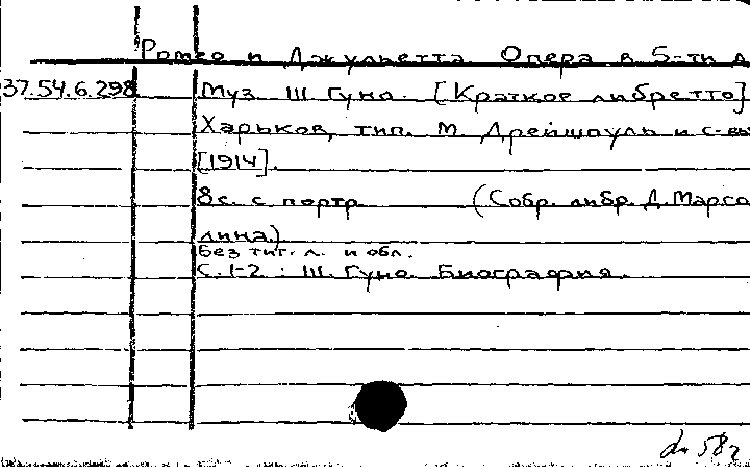 Ромео и Джульетта. Опера в 5-ти д
37.54.6.298 Муз. Ш. Гуно. [Краткое либретто]
Харьков, тип. М. Дрейшпуль и с-вья
[1914].
8 с. с портр. (Собр. либр. Д. Марсо
лина.)
Без тит. л. и обл.
С. 1-2 : Ш. Гуно. Биография.